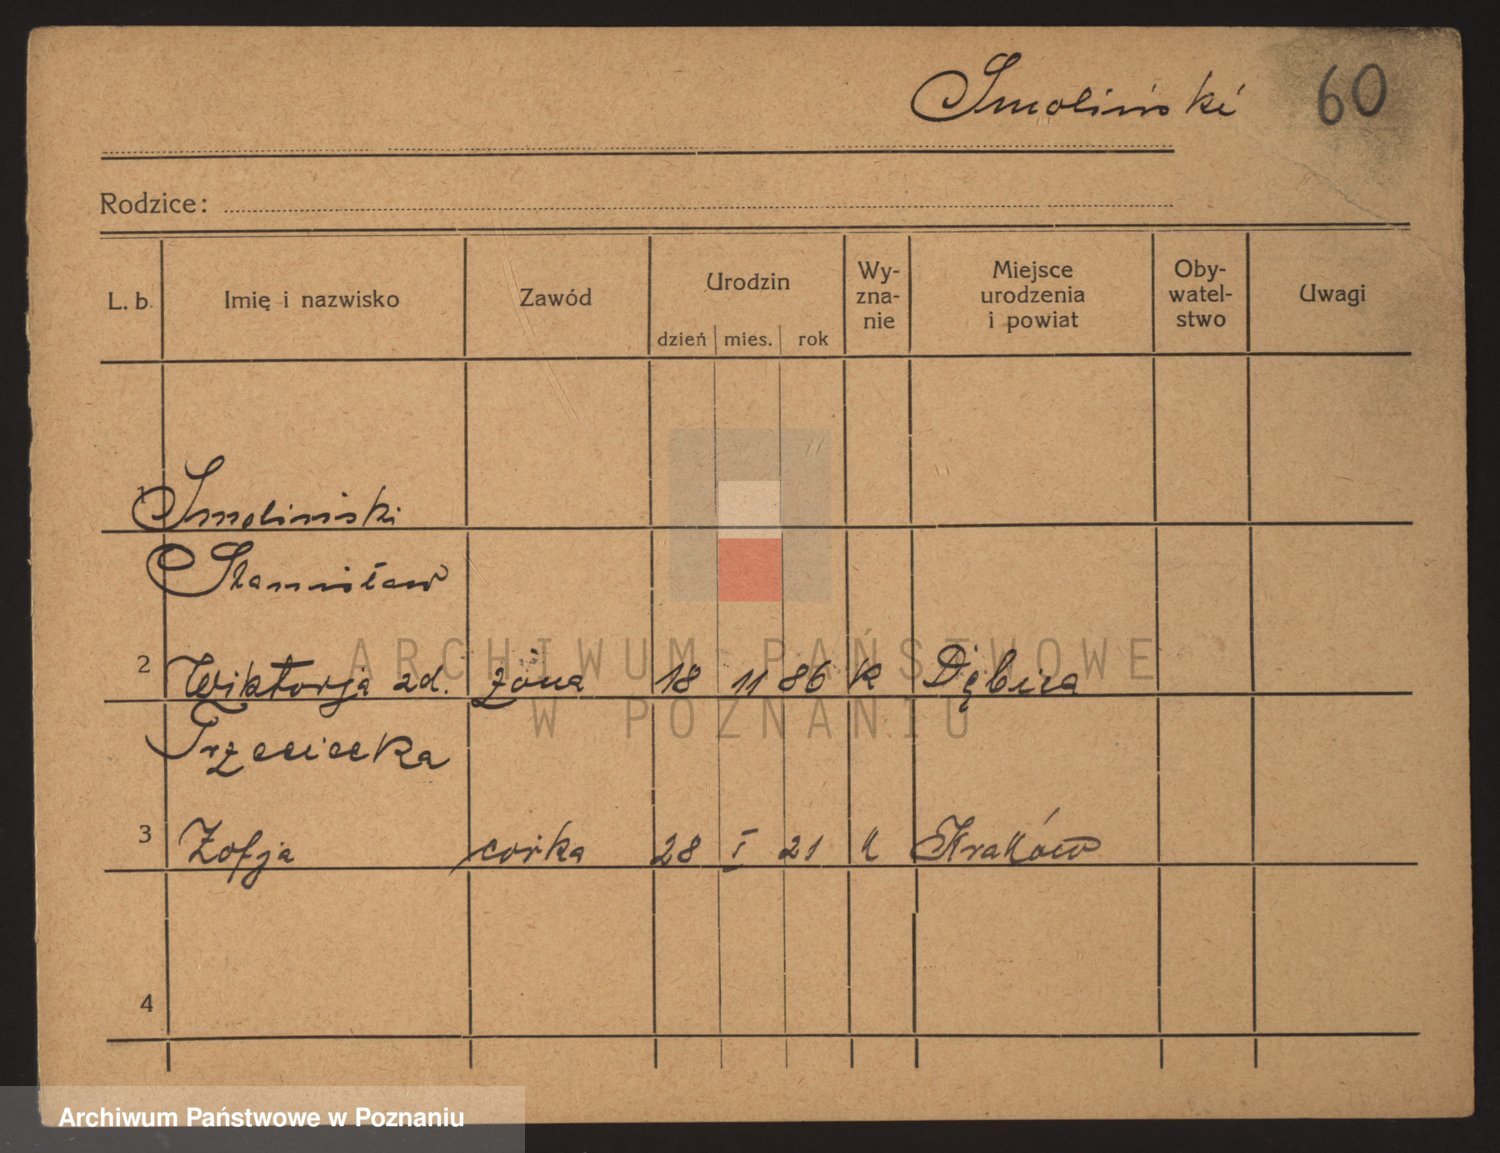 Smoliński 60
Rodzice:
L. b. Imię i nazwisko Zawód Urodzin dzień mies. rok Wy-zna-nie Miejsce urodzenia i powiat Oby-watel-stwo Uwagi
1 Smoliński
Stanisław
2 Wiktorja zd. żona 18 11 86 K Dębica
Trzeciecka
3 Zofja córka 28 I 21 K Kraków
4
ARCHIWUM PAŃSTWOWE
W POZNANIU
Archiwum Państwowe w Poznaniu